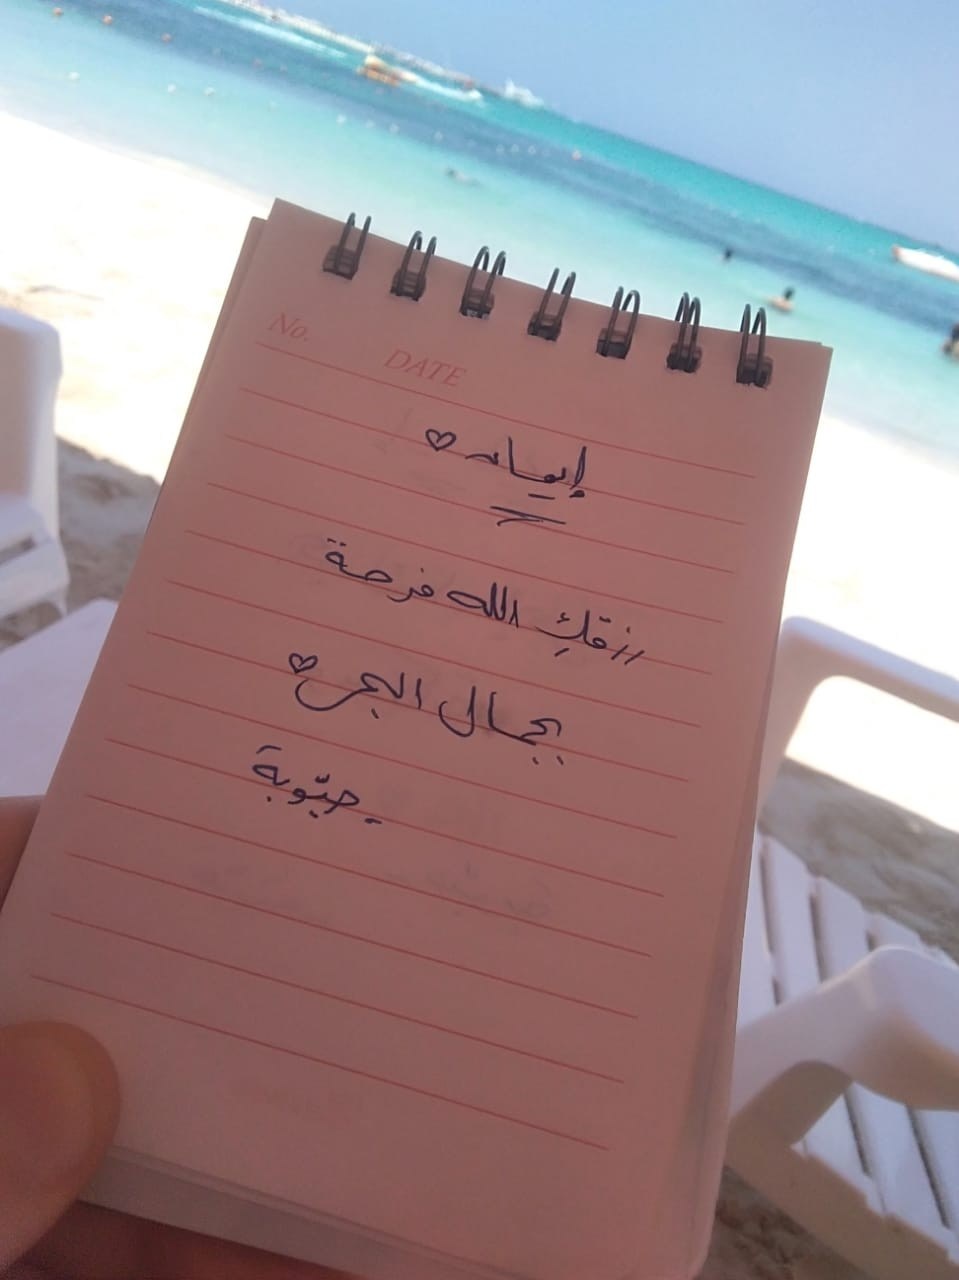 No. DATE
إيمان ♡
رزقكِ الله فرحة
بجمال البحر ♡